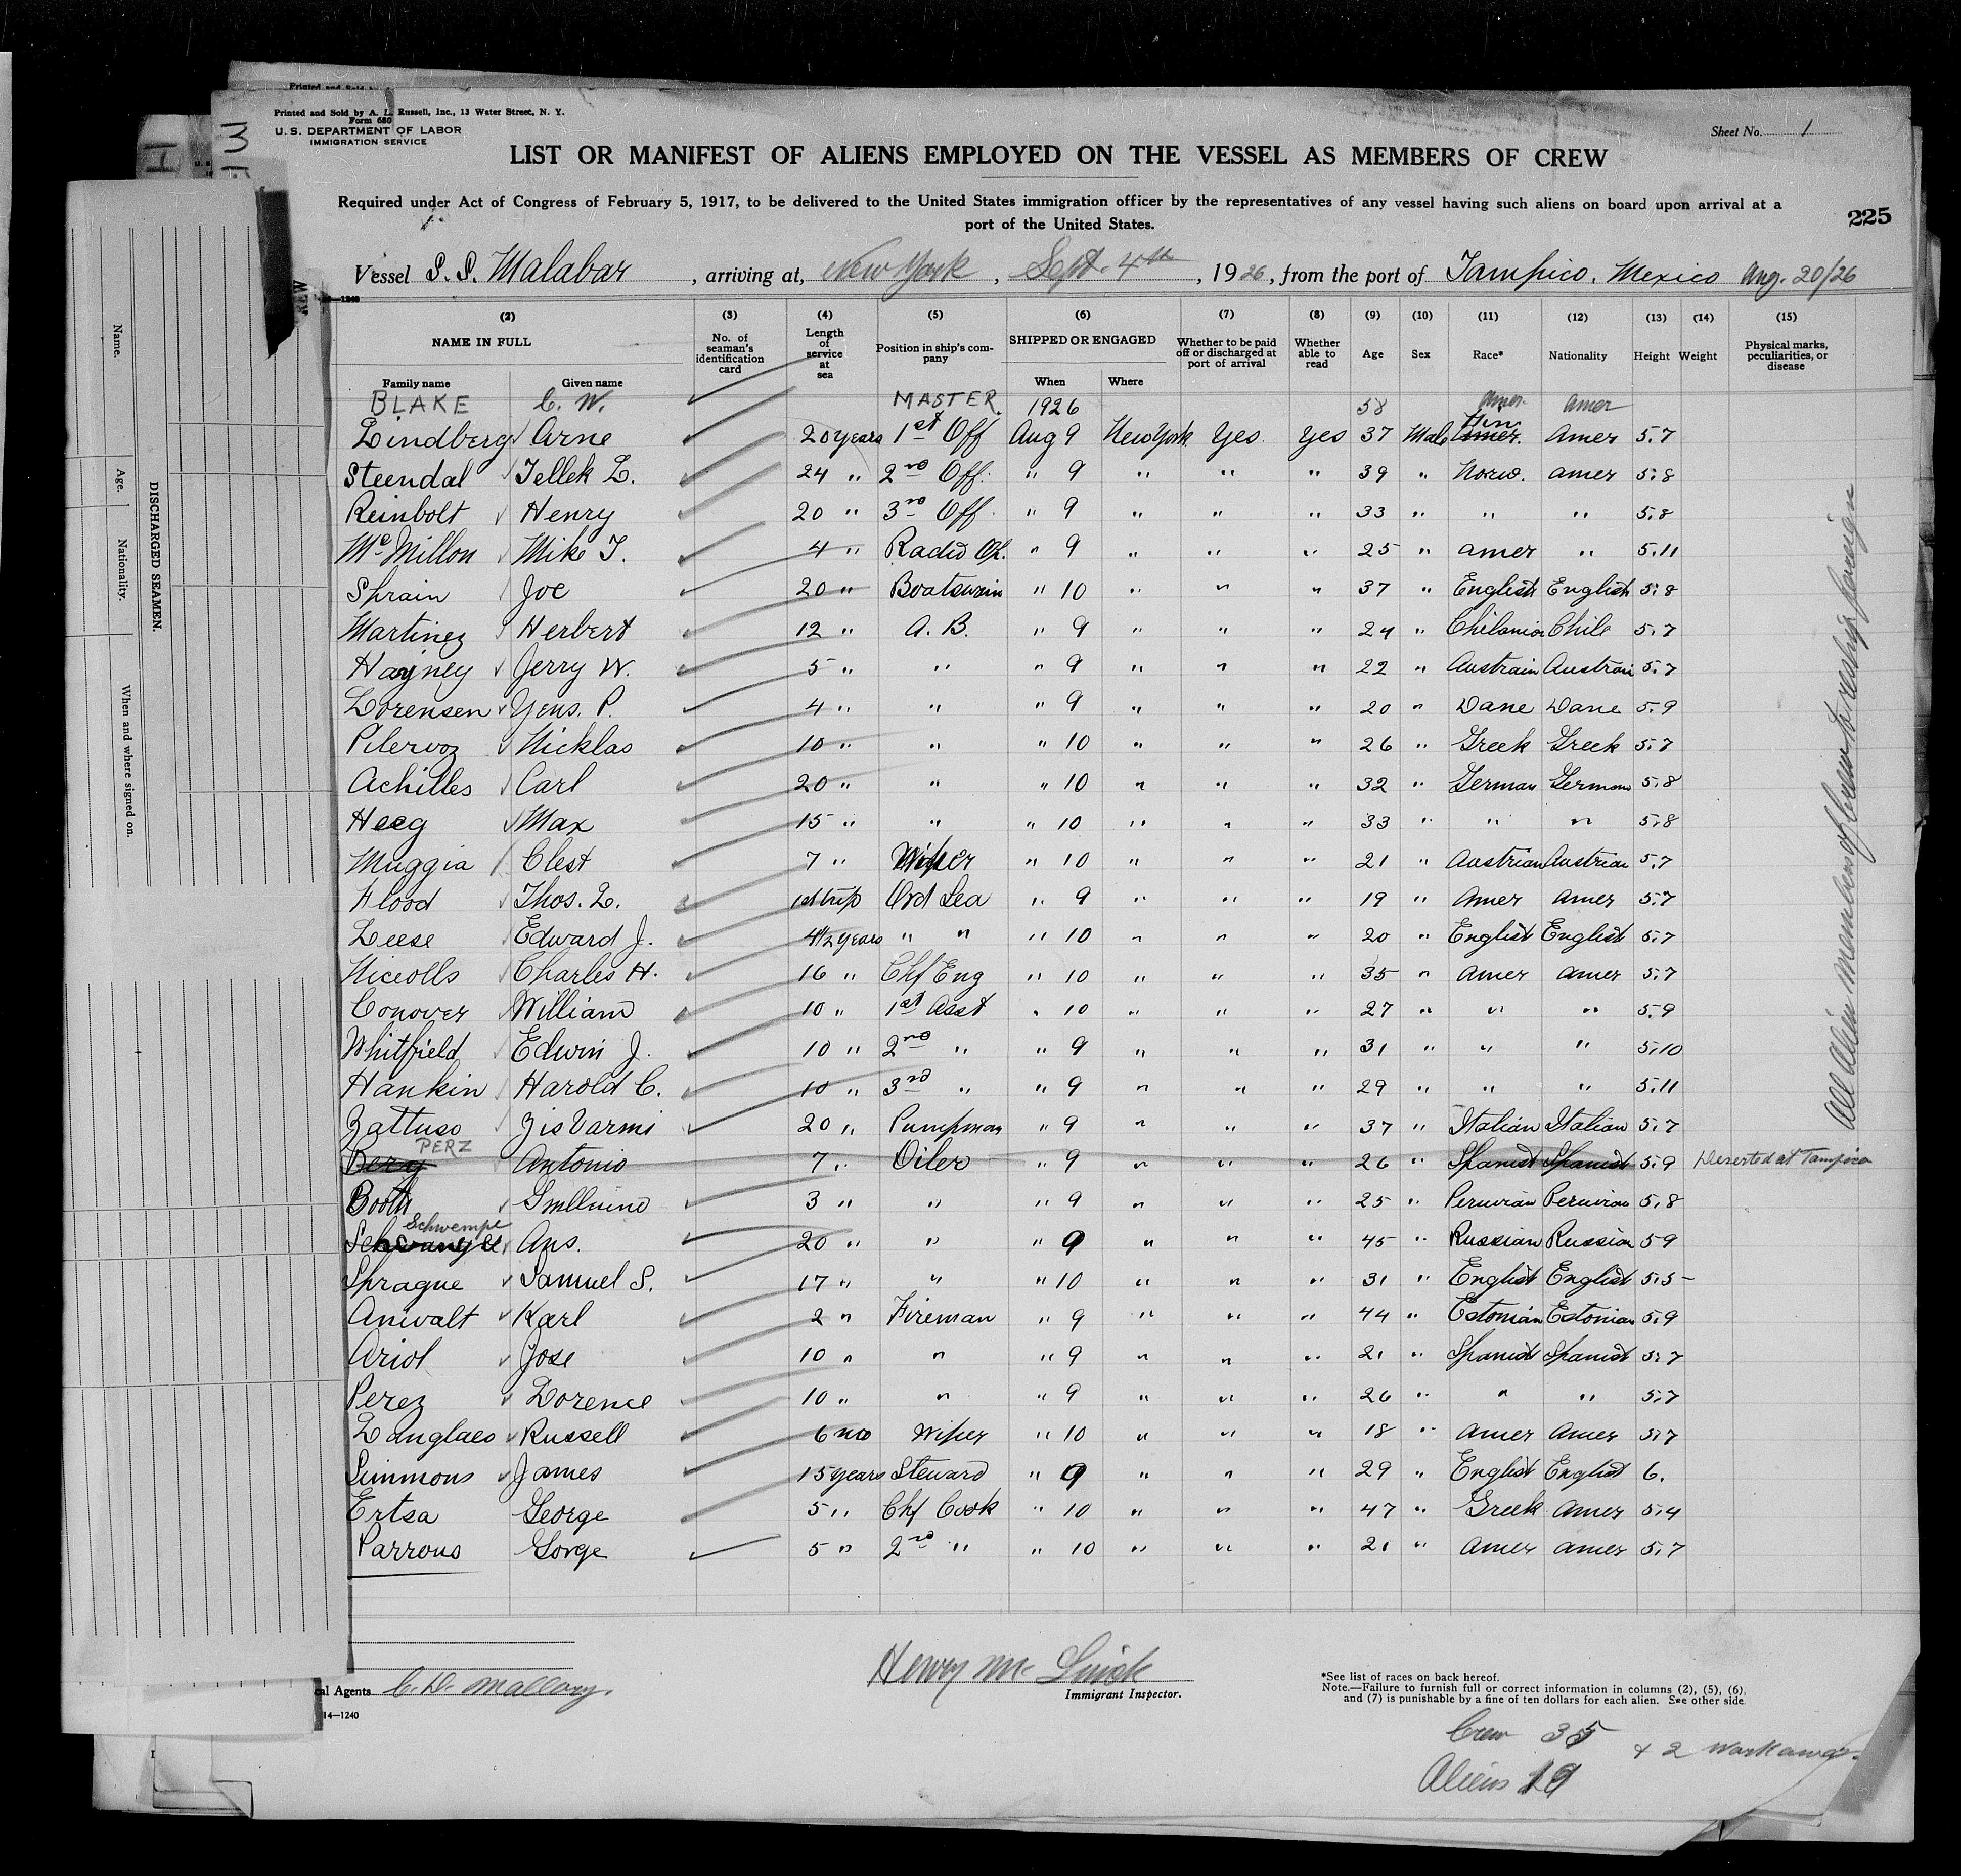 Printed and Sold by A. L. Russell, Inc., 13 Water Street, N. Y.
Form 680
U. S. DEPARTMENT OF LABOR
IMMIGRATION SERVICE
Sheet No. 1
LIST OR MANIFEST OF ALIENS EMPLOYED ON THE VESSEL AS MEMBERS OF CREW
Required under Act of Congress of February 5, 1917, to be delivered to the United States immigration officer by the representatives of any vessel having such aliens on board upon arrival at a
port of the United States.
225
Vessel S. S. Malabar, arriving at, New York, Sept. 4th, 1926, from the port of Tampico, Mexico Aug. 20/26
(2) (3) (4) (5) (6) (7) (8) (9) (10) (11) (12) (13) (14) (15)
NAME IN FULL No. of seaman's identification card Length of service at sea Position in ship's company SHIPPED OR ENGAGED Whether to be paid off or discharged at port of arrival Whether able to read Age Sex Race* Nationality Height Weight Physical marks, peculiarities, or disease
Family name Given name When Where
BLAKE C. W. MASTER. 1926 58 Amer. Amer
Lindberg Arne 20 years 1st Off Aug 9 New York Yes Yes 37 Male Amer. Amer 5.7
Steendal Tellek L. 24 " 2nd Off. " 9 " " " 39 " Norw. Amer 5.8
Reinbolt Henry 20 " 3rd Off " 9 " " " 33 " " " 5.8
McMillon Mike T. 4 " Radio Op. " 9 " " " 25 " Amer " 5.11
Sprain Joe 20 " Boatswain " 10 " " " 37 " English English 5.8
Martinez Herbert 12 " A. B. " 9 " " " 24 " Chilanian Chile 5.7
Hayney Jerry W. 5 " " " 9 " " " 22 " Austrain Austrain 5.7
Lorensen Yens. P. 4 " " " 9 " " " 20 " Dane Dane 5.9
Pilervoz Nicklas 10 " " " 10 " " " 26 " Greek Greek 5.7
Achilles Carl 20 " " " 10 " " " 32 " German German 5.8
Heeg Max 15 " " " 10 " " " 33 " " " 5.8
Muggia Clest 7 " Wiper " 10 " " " 21 " Austrian Austrian 5.7
Flood Thos. L. 1st trip Ord Sea " 9 " " " 19 " Amer Amer 5.7
Leese Edward J. 4 1/2 years " " " 10 " " " 20 " English English 5.7
Niceolls Charles H. 16 " Chf Eng " 10 " " " 35 " Amer Amer 5.7
Conover William 10 " 1st Asst " 10 " " " 27 " " " 5.9
Whitfield Edwin J. 10 " 2nd " " 9 " " " 31 " " " 5.10
Hankin Harold C. 10 " 3rd " " 9 " " " 29 " " " 5.11
Zattuso 20 " Pumpman " 9 " " " 37 " Italian Italian 5.7
PERZ Antonio 7 " Oiler " 9 " " " 26 " Spanish Spanish 5.9 Deserted at Tampico
Booth 3 " " " 9 " " " 25 " Peruvian Peruvian 5.8
Schwempe Ans. 20 " " " 9 " " " 45 " Russian Russian 5.9
Sprague Samuel S. 17 " " " 10 " " " 31 " English English 5.5
Anwalt Karl 2 " Fireman " 9 " " " 44 " Estonian Estonian 5.9
Ariol Jose 10 " " " 9 " " " 21 " Spanish Spanish 5.7
Perez Lorence 10 " " " 9 " " " 26 " " " 5.7
Langlaes Russell 6 mo Wiper " 10 " " " 18 " Amer Amer 5.7
Simmons James 15 years Steward " 9 " " " 29 " English English 6.
Ertsa George 5 " Chf Cook " 10 " " " 47 " Greek Amer 5.4
Parrous Gorge 5 " 2nd " " 10 " " " 21 " Amer Amer 5.7
All Alien members of Crew to reship foreign
cal Agents C. D. Mallory.
14—1240
Henry Mc
Immigrant Inspector.
*See list of races on back hereof.
Note.—Failure to furnish full or correct information in columns (2), (5), (6), and (7) is punishable by a fine of ten dollars for each alien. See other side.
Crew 35 + 2 workaways
Aliens 19
DISCHARGED SEAMEN.
Name.
Age.
Nationality.
When and where signed on.